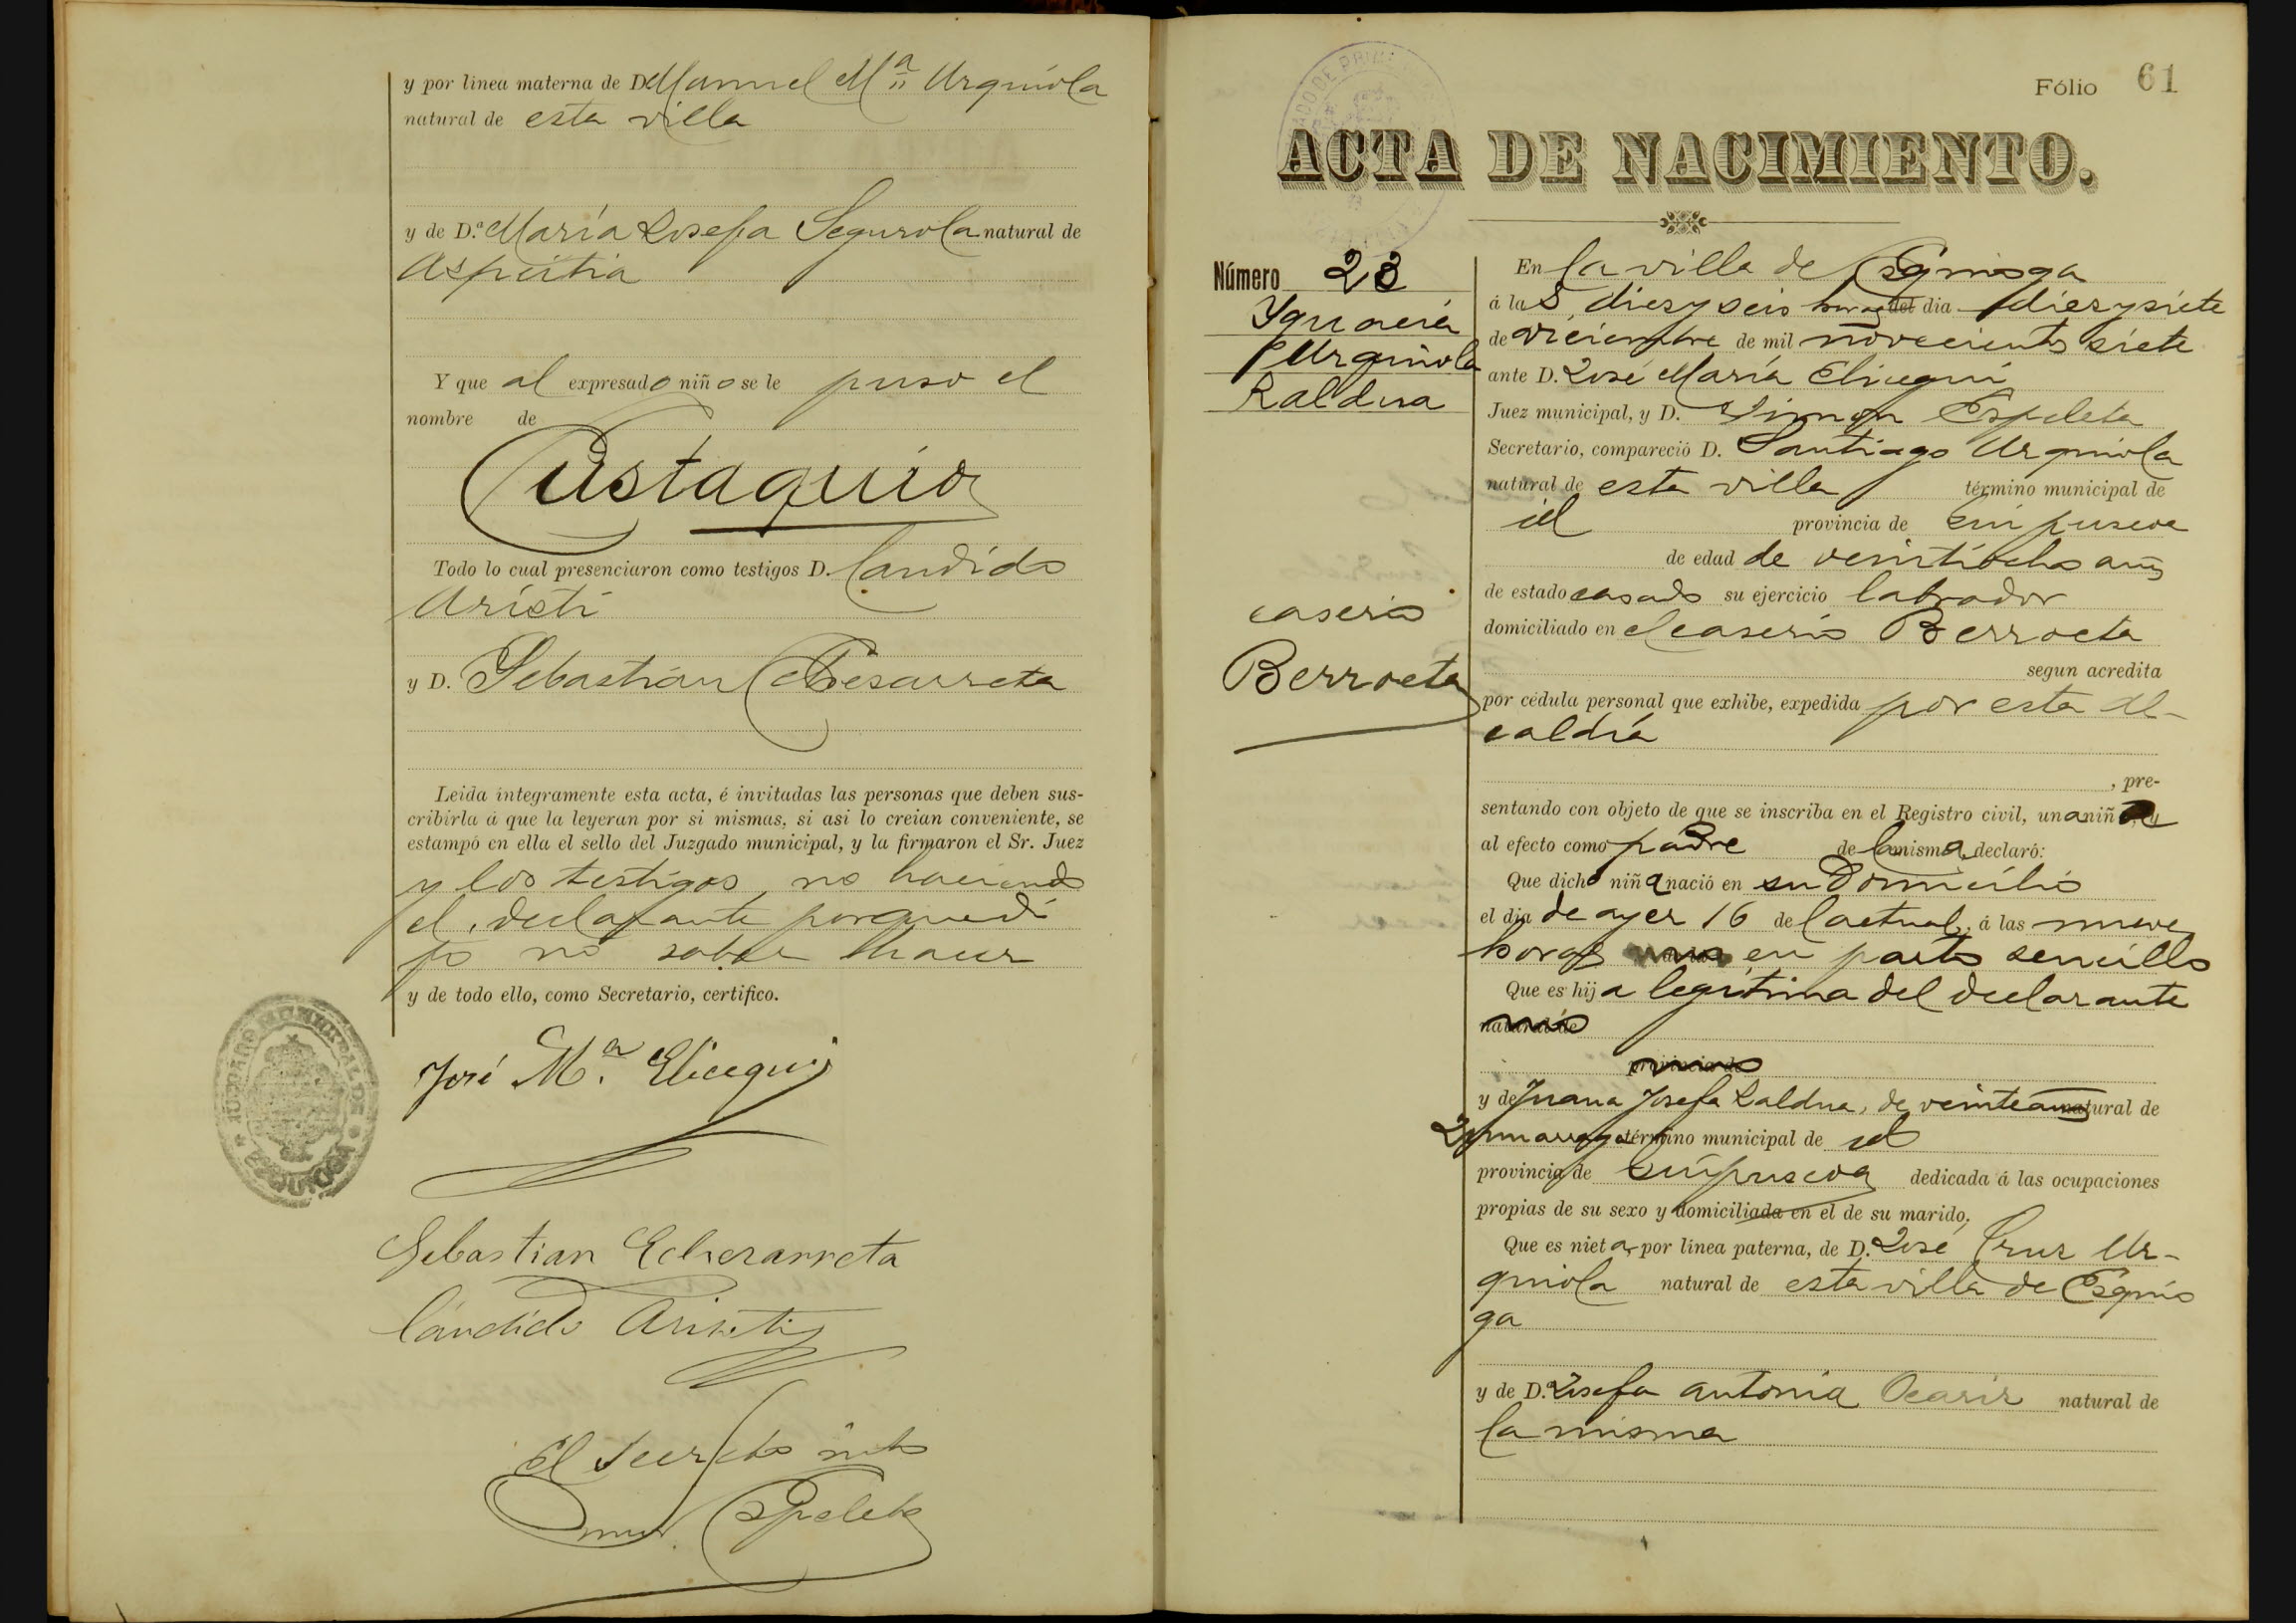 y por linea materna de D. Manuel Mª Urquiola
natural de esta villa
y de D.ª María Josefa Segurola natural de
Aspeitia
Y que al expresado niño se le puso el
nombre de
Eustaquio
Todo lo cual presenciaron como testigos D. Candido
Aristi
y D. Sebastián Echesarreta
Leida integramente esta acta, é invitadas las personas que deben sus-
cribirla á que la leyeran por si mismas, si asi lo creian conveniente, se
estampó en ella el sello del Juzgado municipal, y la firmaron el Sr. Juez
y los testigos, no haciendo
el declarante porque di
jo no saber hacer
y de todo ello, como Secretario, certifico.
JUZGADO MUNICIPAL DE EZQUIOGA
José M.ª Elicegui
Sebastian Echezarreta
Cándido Aristi
El Secreto
Simon Espeleta
Fólio 61
ACTA DE NACIMIENTO.
Número 23
Ygnacia
Urquiola
Zaldua
caserio
Berroeta
En la villa de Esquioga
á las diez y seis horas del dia diez y siete
de diciembre de mil novecientos siete
ante D. José María Elicegui
Juez municipal, y D. Simon Espeleta
Secretario, compareció D. Santiago Urquiola
natural de esta villa término municipal de
id provincia de Guipuscoa
de edad de veintiocho años
de estado casado su ejercicio labrador
domiciliado en el caserio Berroeta
segun acredita
por cédula personal que exhibe, expedida por esta al-
caldía
, pre-
sentando con objeto de que se inscriba en el Registro civil, una niña, y
al efecto como padre de la misma, declaró:
Que dicha niña nació en su domicilio
el dia de ayer 16 del actual, á las nueve
horas en parto sencillo
Que es hija legítima del declarante
natural de
provincia de
y de Juana Josefa Zaldua, de veinte años natural de
Zumarraga término municipal de id
provincia de Guipuscoa dedicada á las ocupaciones
propias de su sexo y domiciliada en el de su marido,
Que es nieta, por linea paterna, de D. José Cruz Ur-
quiola natural de esta villa de Esquio
ga
y de D.ª Josefa Antonia Ocariz natural de
la misma